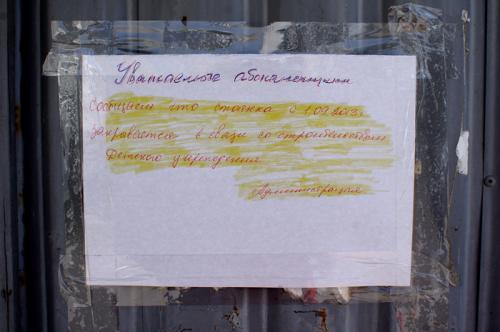 Уважаемые абонементщики
Сообщаем что стоянка с 1.09.2013г
закрывается в связи со строительством
Детского учреждения.
Администрация